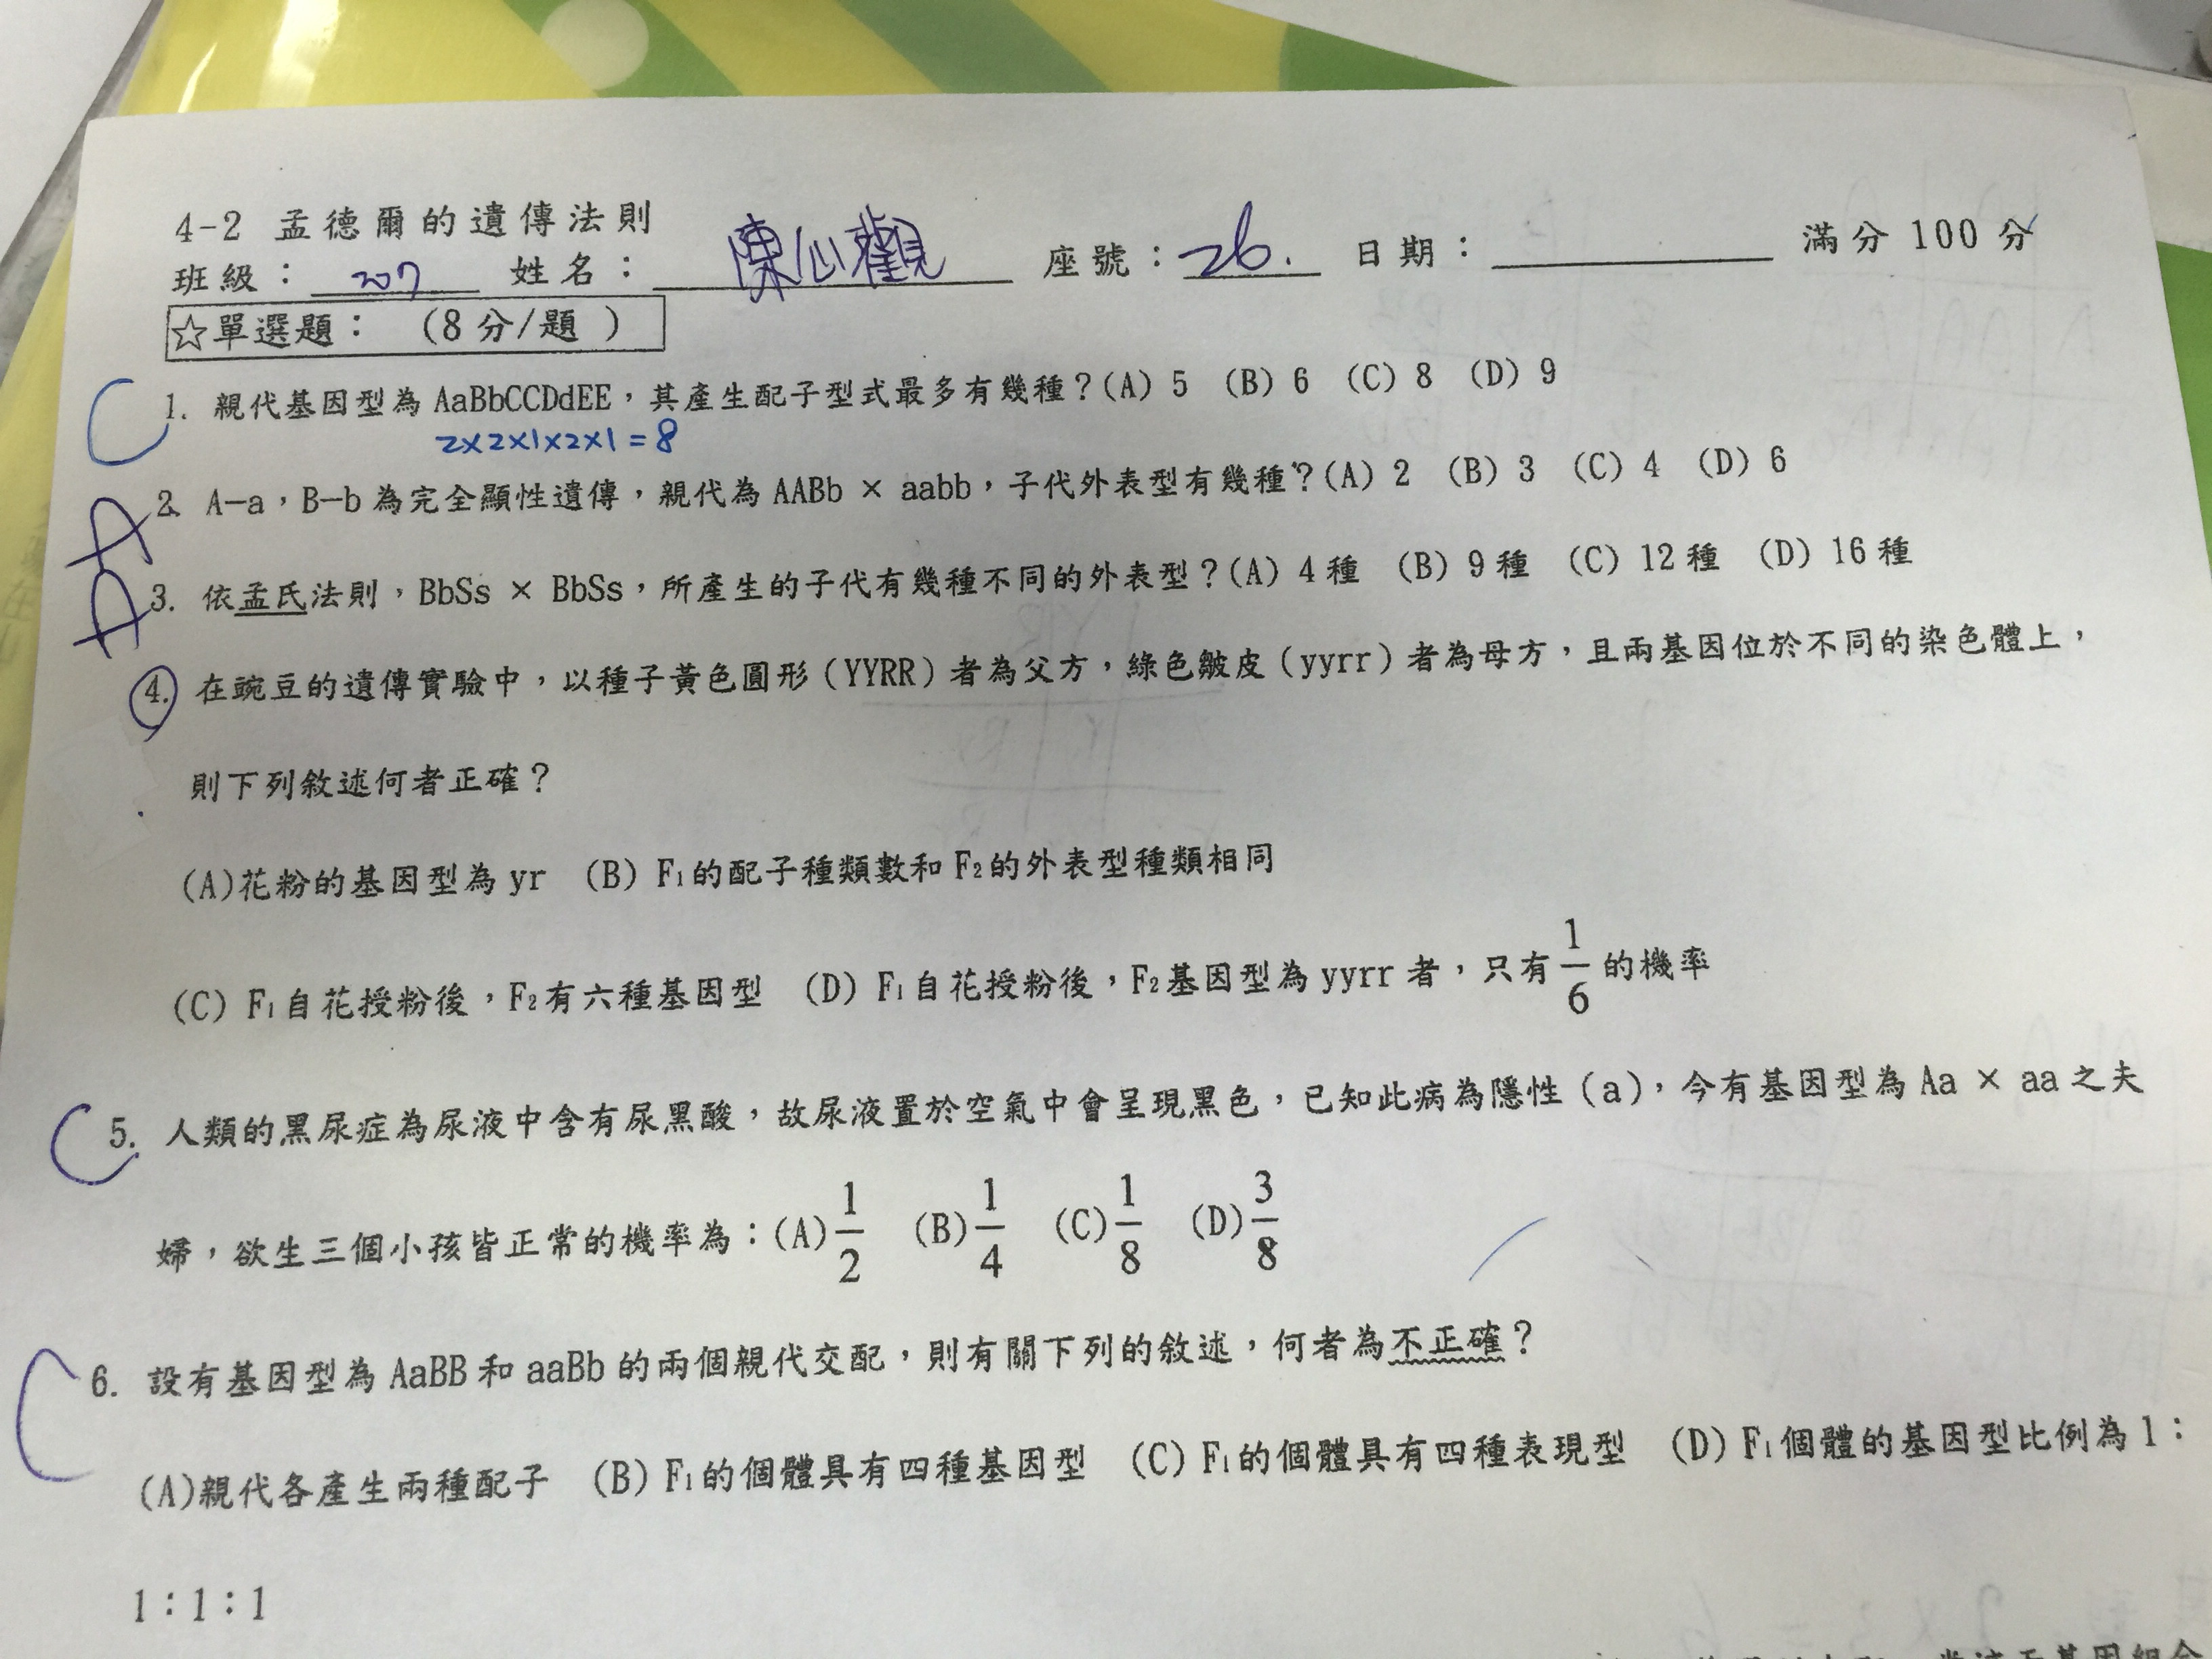 4-2 孟德爾的遺傳法則
班級：207 姓名：陳心觀 座號：26. 日期： 滿分 100 分
☆單選題： (8 分/題 )
C 1. 親代基因型為 AaBbCCDdEE，其產生配子型式最多有幾種？(A) 5 (B) 6 (C) 8 (D) 9
2×2×1×2×1=8
A 2. A—a，B—b 為完全顯性遺傳，親代為 AABb × aabb，子代外表型有幾種？(A) 2 (B) 3 (C) 4 (D) 6
A 3. 依孟氏法則，BbSs × BbSs，所產生的子代有幾種不同的外表型？(A) 4 種 (B) 9 種 (C) 12 種 (D) 16 種
4. 在豌豆的遺傳實驗中，以種子黃色圓形（YYRR）者為父方，綠色皺皮（yyrr）者為母方，且兩基因位於不同的染色體上，
則下列敘述何者正確？
(A)花粉的基因型為 yr (B) F₁的配子種類數和 F₂的外表型種類相同
(C) F₁自花授粉後，F₂有六種基因型 (D) F₁自花授粉後，F₂基因型為 yyrr 者，只有 1/6 的機率
C 5. 人類的黑尿症為尿液中含有尿黑酸，故尿液置於空氣中會呈現黑色，已知此病為隱性（a），今有基因型為 Aa × aa 之夫
婦，欲生三個小孩皆正常的機率為：(A) 1/2 (B) 1/4 (C) 1/8 (D) 3/8
C 6. 設有基因型為 AaBB 和 aaBb 的兩個親代交配，則有關下列的敘述，何者為不正確？
(A)親代各產生兩種配子 (B) F₁的個體具有四種基因型 (C) F₁的個體具有四種表現型 (D) F₁個體的基因型比例為 1：
1：1：1